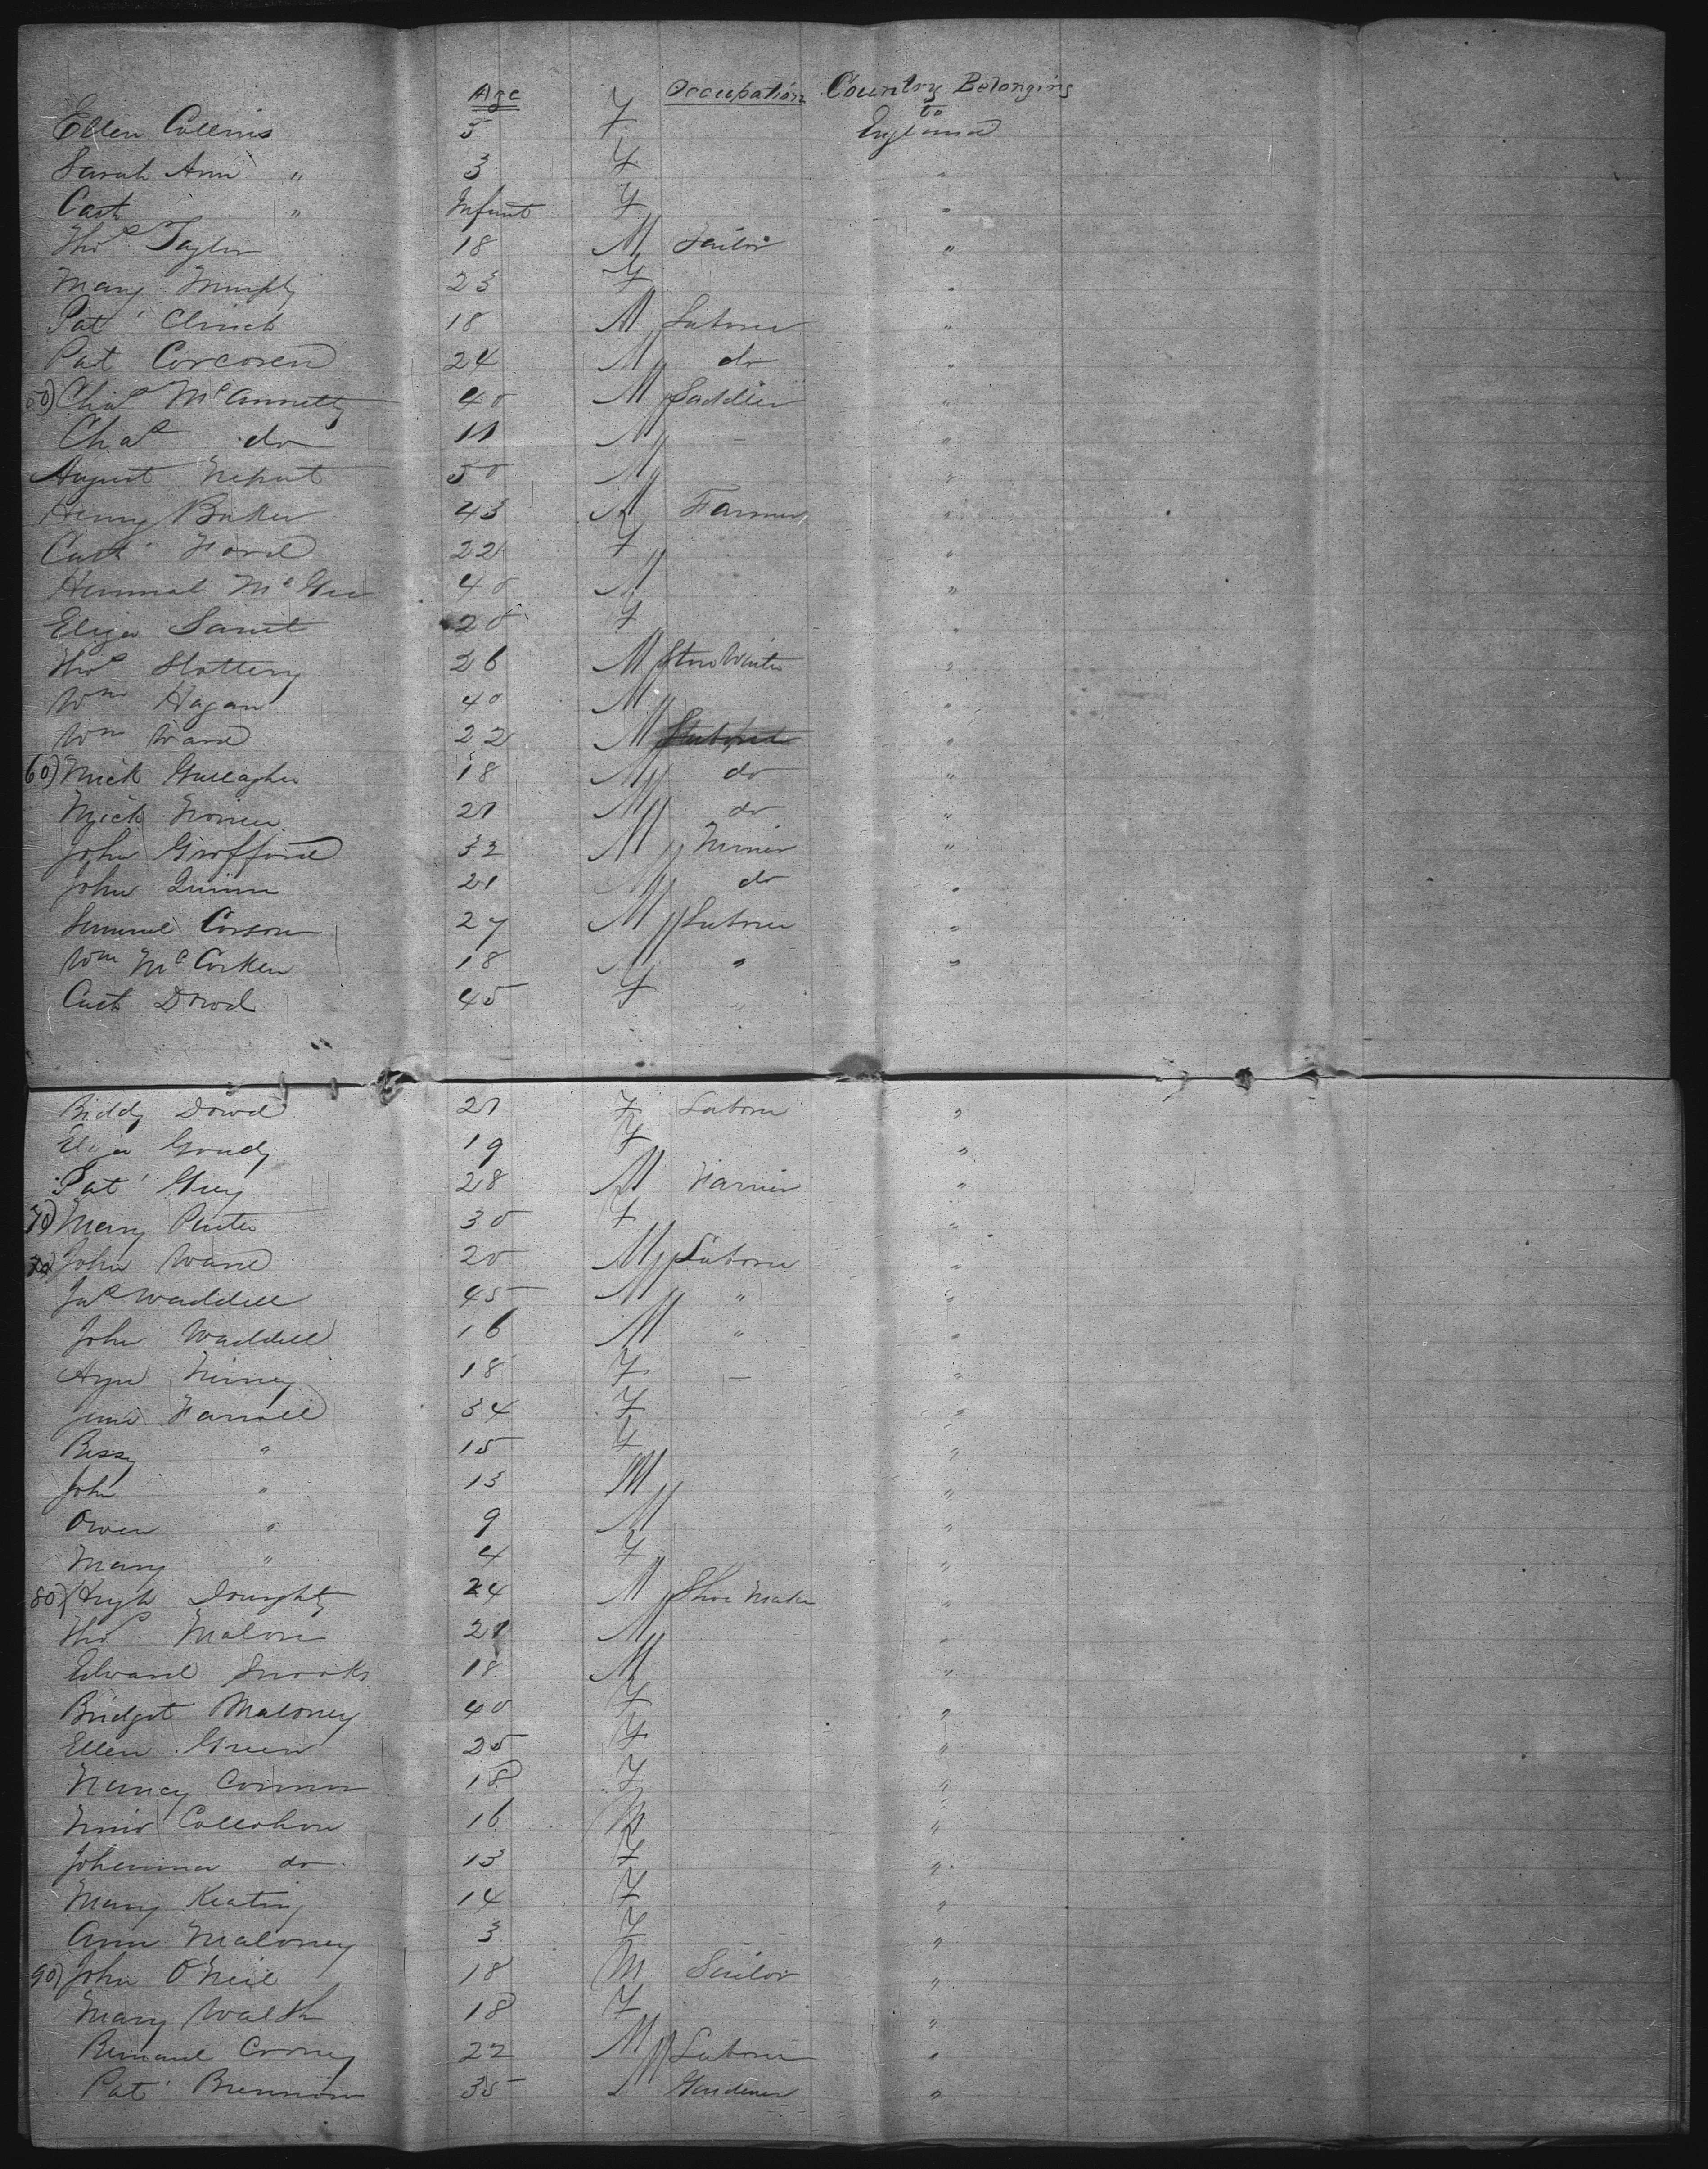 Age Occupation Country Belonging to
Ellen Collins 5 F England
Sarah Ann " 3 F "
Cath " Infant F "
Thos Taylor 18 M Tailor "
Mary Murphy 23 F "
Pat Clinch 18 M Laborer "
Pat Corcoren 24 M do "
50) Chas McAnnetty 40 M Saddler "
Chas do 11 M - "
August 50 M "
Henry Baker 43 M Farmer "
Cath Ford 22 F "
McGee 40 M "
Eliza 20 F "
Thos Slattery 26 M "
Wm Hagan 40 M "
Wm Ward 22 M "
60) Mick Gallagher 18 M do "
Mick 21 M do "
John Grofford 32 M Miner "
John Quinn 21 M do "
Samuel Corson 27 M Laborer "
Wm McCorken 18 M " "
Cath Dowd 45 F "
Biddy Dowd 21 F Laborer "
Eliza Goudy 19 F "
Pat Grey 28 M "
70) Mary Porter 30 F "
John Ward 20 M Laborer "
Jas Waddell 45 M " "
John Waddell 16 M " "
18 F - "
Jane Farrell 34 F "
Bessy " 15 F "
John " 13 M "
Owen " 9 M "
Mary " 4 F "
80) Hugh Doughty 24 M Shoe Maker "
Thos Malone 21 M "
Edward Snooks 18 M "
Bridget Maloney 40 F "
Ellen Green 25 F "
Nancy Connor 18 F "
Callahan 16 M "
Johanna do 13 F "
Mary Keating 14 F "
Ann Maloney 3 F "
90) John O'Neil 18 M Sailor "
Mary Walsh 18 F "
Cooney 22 M Laborer "
Pat Brennan 35 Gardener "